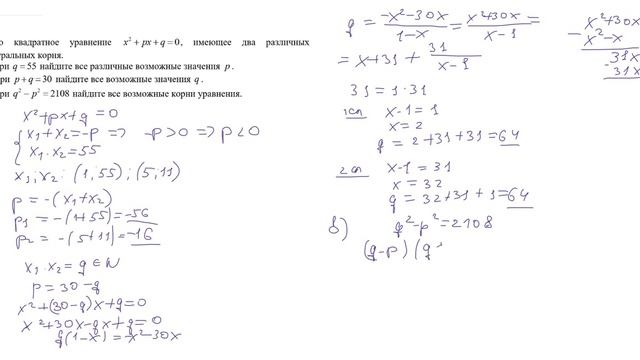 о квадратное уравнение x² + px + q = 0, имеющее два различных
уральных корня.
ри q = 55 найдите все различные возможные значения p .
ри p + q = 30 найдите все возможные значения q .
ри q² − p² = 2108 найдите все возможные корни уравнения.
x²+px+q=0
{x₁+x₂=-p => -p>0 => p<0
x₁·x₂=55
x₁; x₂: (1,55); (5,11)
p = -(x₁+x₂)
p₁ = -(1+55)=-56
p₂ = -(5+11)=-16
x₁·x₂=q ∈ N
p = 30-q
x²+(30-q)x+q=0
x²+30x-qx+q=0
q(1-x)=x²-30x
q = -x²-30x / 1-x = x²+30x / x-1
= x+31 + 31 / x-1
31 = 1·31
1сл x-1=1
x=2
q = 2+31+31=64
2сл x-1=31
x=32
q = 32+31+1=64
в) q²-p²=2108
(q-p)(q
x²+30x
x²-x
31x
31x